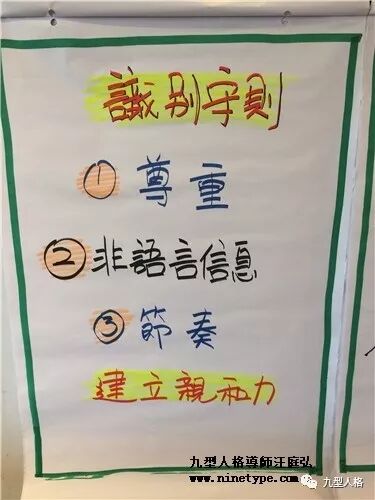 識别守則
① 尊重
② 非語言信息
③ 節奏
建立親和力
九型人格導師汪庭弘
www.ninetype.com
九型人格